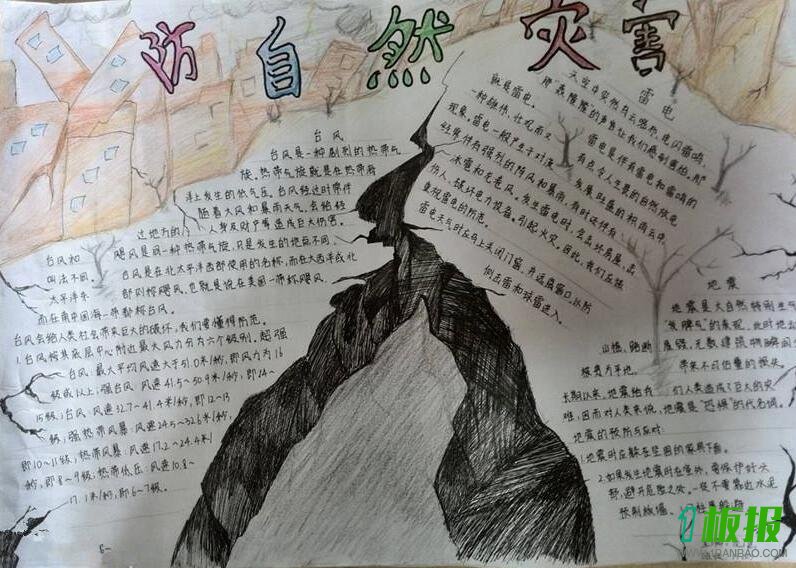 防自然灾害
台风
台风是一种剧烈的热带气
旋,热带气旋就是在热带海
洋上发生的低气压。台风经过时常伴
随着大风和暴雨天气。会给经
过地方的人身及财产等造成巨大伤害。
台风和飓风是同一种热带气旋,只是发生的地点不同,
叫法不同。台风是在北太平洋西部使用的名称,而在大西洋或北
太平洋东部则称飓风。也就是说在美国一带称飓风,
而在南中国海一带
台风会给人类社会带来巨大的破坏,我们要懂得防范。
1.台风按其底层中心附近最大风力分为六个级别,超强
台风:最大平均风速大于51.0米/秒,即风力为16
级或以上;强台风:风速41.5~50.9米/秒,即14~
15级;台风:风速32.7~41.4米/秒,即12~13
级;强热带风暴:风速24.5~32.6米/秒,
即10~11级;热带风暴:风速17.2~24.4米/
秒,即8~9级;热带低压:风速10.8~
17.1米/秒,即6~7级。
雷电
天空中突然乌云密布,电闪雷鸣,
那“轰隆隆”的声音让我们感到害怕。那
就是雷电。
雷电是伴有雷电和雷鸣的
一种雄伟、壮观而又有点令人生畏的自然放电
现象。雷电一般产生于对流发展旺盛的积雨云中,
往常伴有强烈的阵风和暴雨,有时还伴有
冰雹和龙卷风。发生雷电时,会击坏房屋、击
伤人,破坏电力设备,引起火灾。因此,我们应该
重视雷电的防范。
雷电天气时应马上关闭门窗,并远离窗口,以防
侧击雷和球雷进入。
地震
地震是大自然特别生气
“发脾气”的表现,此时地
山摇,路断屋毁,无数建筑物瞬间
被夷为平地,带来不可估量的损失。
长期以来,地震给我们人类造成了巨大的灾
难,因而对人类来说,地震是“恐惧”的代名词。
地震的预防与应对:
1.地震时应躲在坚固的家具下面。
2.如果发生地震时在室外,要保护好头
部,避开危险之处。一定不要靠近水泥
预制板墙、
板报
WWW.1BANBAO.COM